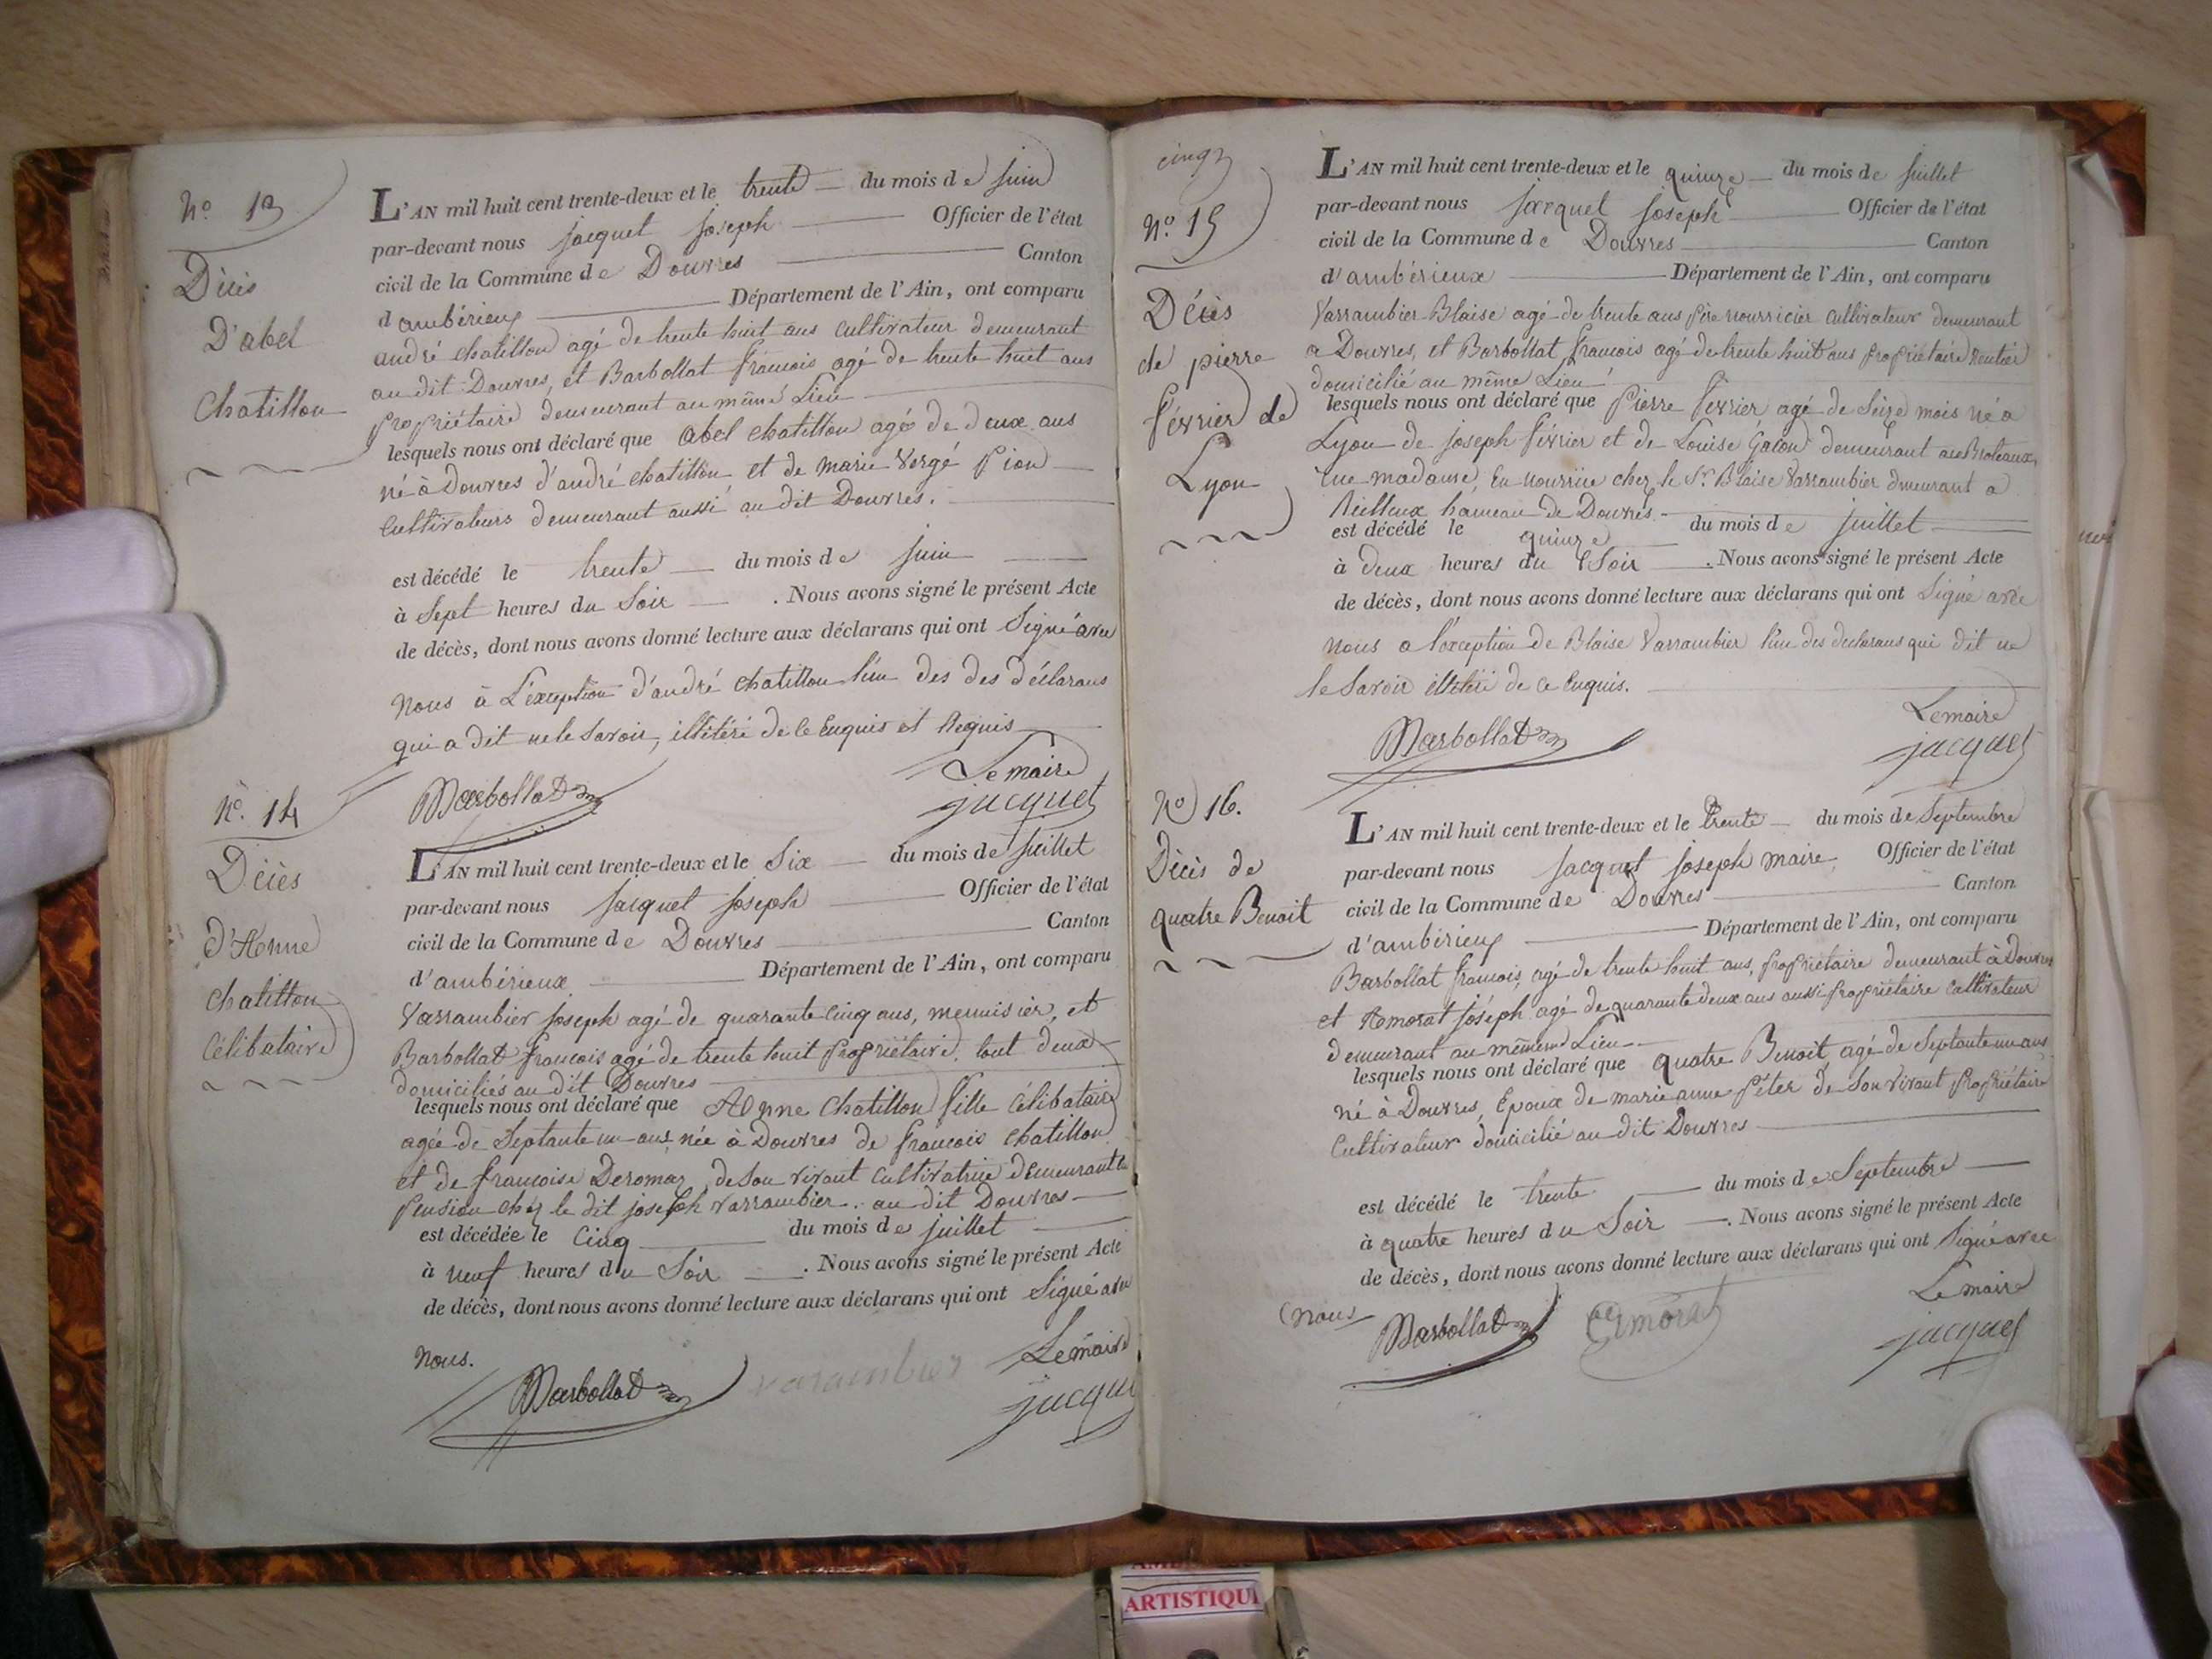 N.o 13
Décès
D'abel
Chatillon
L'AN mil huit cent trente-deux et le trente du mois de juin
par-devant nous jacquet joseph Officier de l'état
civil de la Commune de Douvres Canton
d'ambérieux Département de l'Ain, ont comparu
andré chatillon agé de trente huit ans cultivateur demeurant
au dit Douvres, et Barbollat françois agé de trente huit ans
propriétaire demeurant au même Lieu
lesquels nous ont déclaré que abel chatillon agé de deux ans
né à Douvres d'andré chatillon et de marie Vergé Pion
Cultivateurs demeurant aussi au dit Douvres.
est décédé le trente du mois de juin
à Sept heures du Soir . Nous avons signé le présent Acte
de décès, dont nous avons donné lecture aux déclarans qui ont Signé avec
nous à L'exception d'andré chatillon l'un des des déclarans
qui a dit ne le Savoir, illitéré de ce Enquis et Requis
Le maire
Barbollat jacquet
N.o 14
Décès
d'Anne
chatillon
Célibataire
L'AN mil huit cent trente-deux et le Six du mois de juillet
par-devant nous jacquet joseph Officier de l'état
civil de la Commune de Douvres Canton
d'ambérieux Département de l'Ain, ont comparu
Varrambier joseph agé de quarante cinq ans, menuisier, et
Barbollat françois agé de trente huit propriétaire, tout deux
domiciliés au dit Douvres
lesquels nous ont déclaré que Anne Chatillon fille Célibataire
agée de Septante un ans née à Douvres de françois chatillon
et de françoise Deromas, de Son vivant Cultivatrice demeurant en
Pension chez le dit joseph varrambier. au dit Douvres
est décédée le Cinq du mois de juillet
à neuf heures du Soir . Nous avons signé le présent Acte
de décès, dont nous avons donné lecture aux déclarans qui ont Signé avec
nous.
Le maire
Barbollat varambier jacquet
cinq
N.o 15
Décès
de pierre
février de
Lyon
L'AN mil huit cent trente-deux et le quinze du mois de juillet
par-devant nous jacquet joseph Officier de l'état
civil de la Commune de Douvres Canton
d'ambérieux Département de l'Ain, ont comparu
Varrambier Blaise agé de trente ans père nourricier cultivateur demeurant
a Douvres, et Barbollat françois agé de trente huit ans propriétaire Rentier
domicilié au même Lieu
lesquels nous ont déclaré que Pierre février agé de Seize mois né a
Lyon de joseph février et de Louise Gacon demeurant aux Broteaux,
rue madame, En nourrice chez le Sr. Blaise Varrambier dmeurant a
hameau de Douvres.
est décédé le quinze du mois de juillet
à deux heures du Soir . Nous avons signé le présent Acte
de décès, dont nous avons donné lecture aux déclarans qui ont Signé avec
nous a l'exception de Blaise Varrambier l'un des declarans qui dit ne
le Savoir illitéré de ce Enquis.
Le maire
Barbollat jacquet
No 16.
Décès de
quatre Benoit
L'AN mil huit cent trente-deux et le trente du mois de Septembre
par-devant nous jacquet joseph maire Officier de l'état
civil de la Commune de Douvres Canton
d'ambérieux Département de l'Ain, ont comparu
Barbollat françois, agé de trente huit ans, propriétaire demeurant à Douvres
et Amorat joséph agé de quarante deux ans aussi propriétaire cultivateur
demeurant au même Lieu
lesquels nous ont déclaré que quatre Benoit agé de Septante un ans
né à Douvres, Epoux de marie anne Péter de Son vivant propriétaire
Cultivateur domicilié au dit Douvres
est décédé le trente du mois de Septembre
à quatre heures du Soir . Nous avons signé le présent Acte
de décès, dont nous avons donné lecture aux déclarans qui ont Signé avec
nous
Le maire
Barbollat amorat jacquet
ARTISTIQU